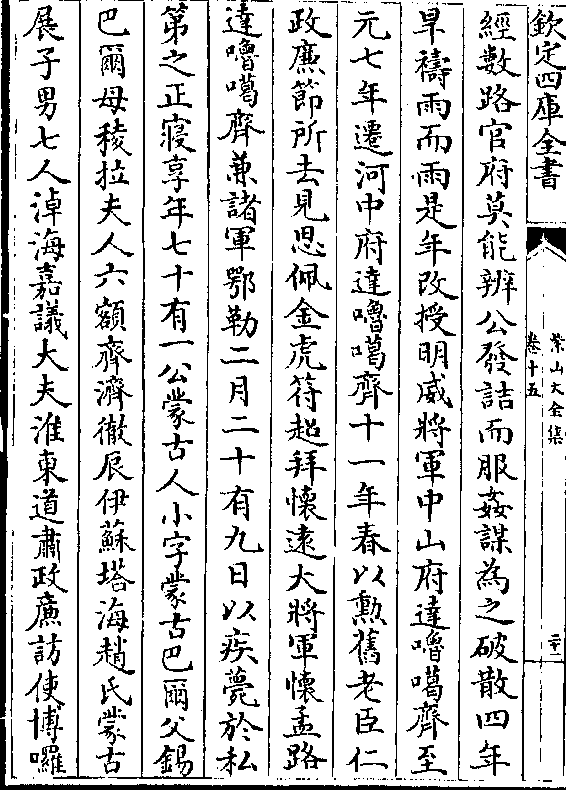 欽定四庫全書
紫山大全集
卷十五
二十二
經數路官府莫能辨公發詰而服姦謀為之破散四年
早禱雨而雨是年改授明威將軍中山府達嚕噶齊至
元七年遷河中府達嚕噶齊十一年春以勲舊老臣仁
政亷節所去見思佩金虎符超拜懷逺大將軍懷孟路
達嚕噶齊兼諸軍鄂勒二月二十有九日以疾薨於私
第之正寢享年七十有一公蒙古人小字蒙古巴爾父錫
巴爾母稜拉夫人六額齊濟徹辰伊蘇塔海趙氏蒙古
展子男七人淖海嘉議大夫淮東道肅政亷訪使博囉